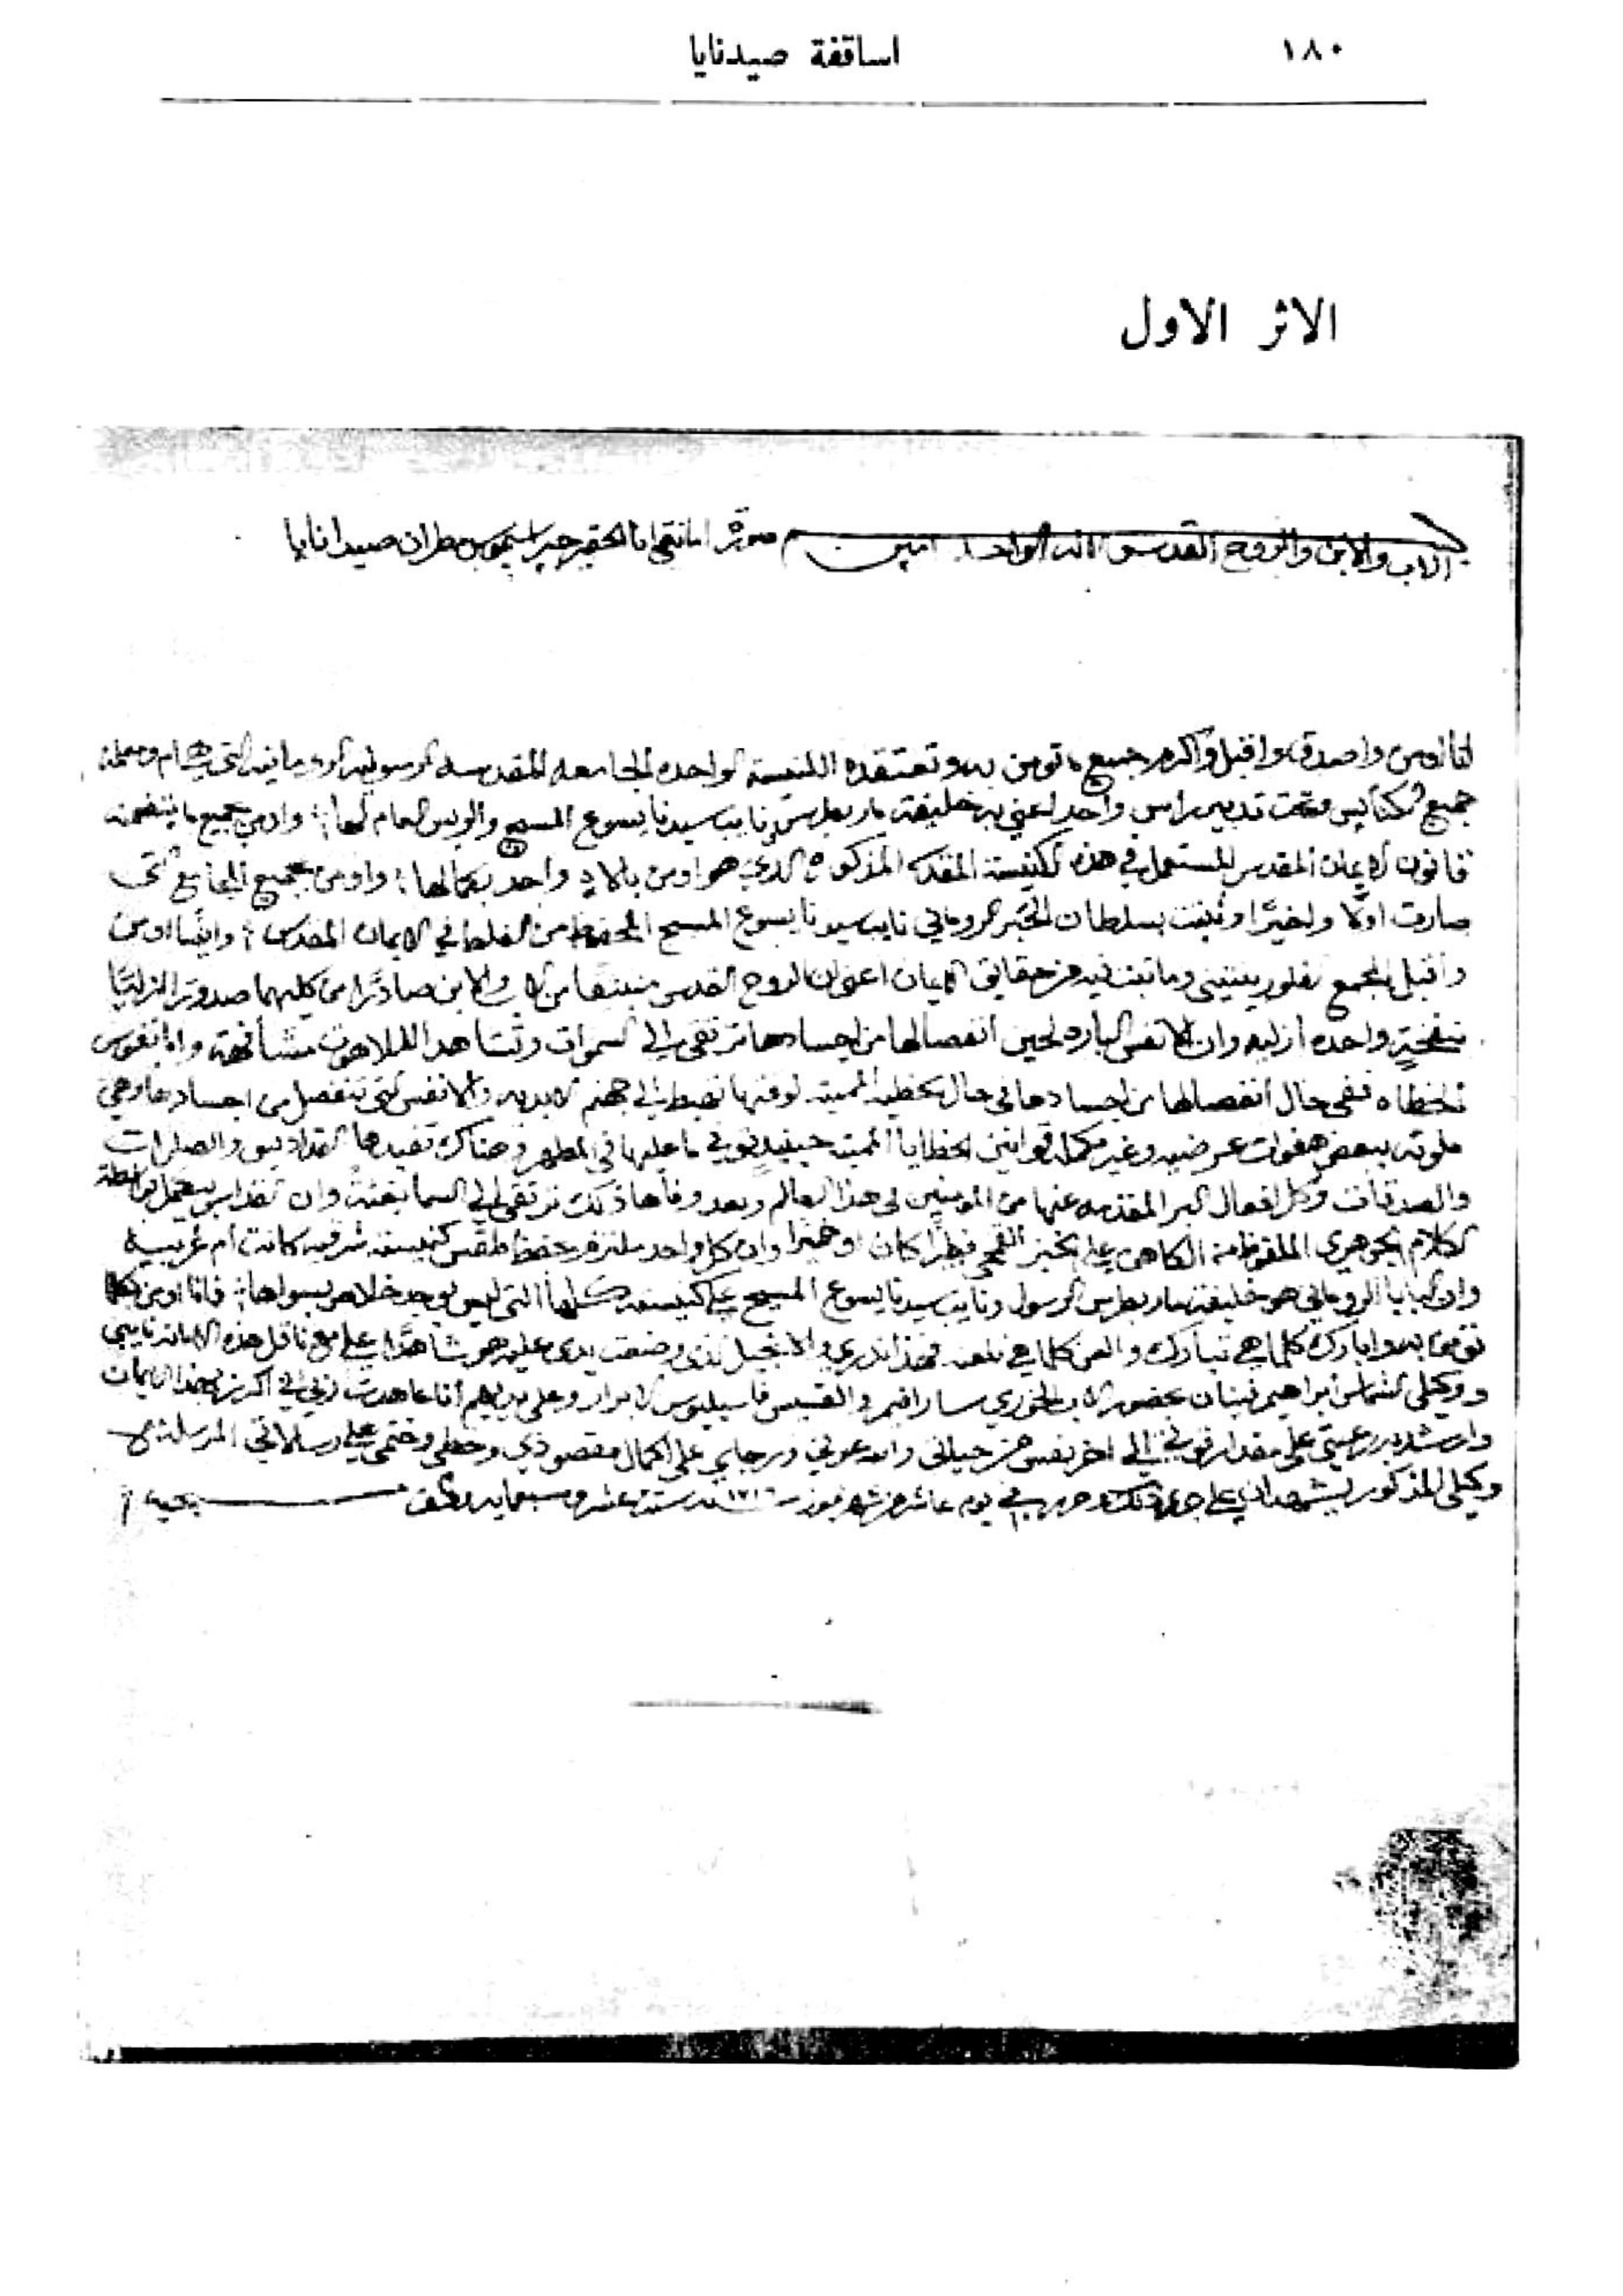 ١٨٠
اساقفة صيدنايا
الاثر الاول
الاب والابن والروح القدس الاله الواحد امين صورة امانتي انا الحقير جيراسيموس مطران صيدانايا
انا اومن واصدق واقبل واكرم جميع ما تومن به وتعتقده الكنيسة الواحده الجامعه المقدسه الرسوليه الرومانيه التي هي ام ومعلمة
جميع الكنايس وتحت تدبير راس واحد اعني به خليفة مار بطرس نايب سيدنا يسوع المسيح والريس العام لها: واومن بجميع ما يتضمنه
قانون الايمان المقدس المستعمل في هذه الكنيسة المقدسه المذكوره الذي هو اومن بالاه واحد بكمالها: واومن بجميع المجامع التي
صارت اولًا واخيرًا وثبتت بسلطان الحبر الروماني نايب سيدنا يسوع المسيح المحفوظ من الغلط في الايمان المقدس: وايضًا اومن
واقبل المجمع الفلورينتيني وما ثبت فيه من حقايق الايمان اعني ان الروح القدس منبثقا من الاب والابن صادرًا من كليهما صدورًا ازليًا
بنفخةٍ واحده ازليه وان الانفس الباره لحين انفصالها من اجسادها ترتقي الى السموات وتشاهد الله اللاهوت مشافهة واما نفوس
الخطاه ففي حال انفصالها من اجسادها في حال الخطيه المميته لوقتها تهبط الى جهنم الابديه والانفس التي تنفصل من اجسادها وهي
ملوثه ببعض هفوات عرضيه وغير مكمله قوانين الخطايا المميته حينيذٍ توفي ما عليها في المطهر وهناك تفيدها القداديس والصلوات
والصدقات وكل افعال البر المقدمه عنها من المومنين في هذا العالم وبعد وفاها ذلك ترتقي الى السما بغتةً وان القداس يكمل بواسطة
الكلام الجوهري الملفوظ من الكاهن على الخبز القمح فطيرًا كان او خميرًا وان كل واحد ملتزم بحفظ طقس كنيسته شرقيه كانت ام غربيه
وان البابا الروماني هو خليفة مار بطرس الرسول ونايب سيدنا يسوع المسيح على كنيسته كلها التي ليس يوجد خلاص بسواها: فانا اومن بكلما
تومن به وابارك كلما هي تبارك والعن كلما هي تلعن فهذا نذري والانجيل الذي وضعت يدي عليه هو شاهدًا علي مع ناقل هذه الامانه نايبي
ووكيلي الشماس ابراهيم بحضور الاب الخوري سارافيم والقسيس فاسيليوس الابرار وعلى يديهم انا عاهدت ربي اني اكرز بهذا الايمان
وارشد به رعيتي على مقدار قوتي الى اخر نفس من حياتي والله عوني ورجاي على اكمال مقصودي وخطي وختمي على رسالاتي المرسله
وكيلي المذكور يشهدان علي بذلك وحرر في يوم عاشر من شهر تموز سنة ١٧١٦ سنة ستة عشر وسبعمايه والف مسيحيه